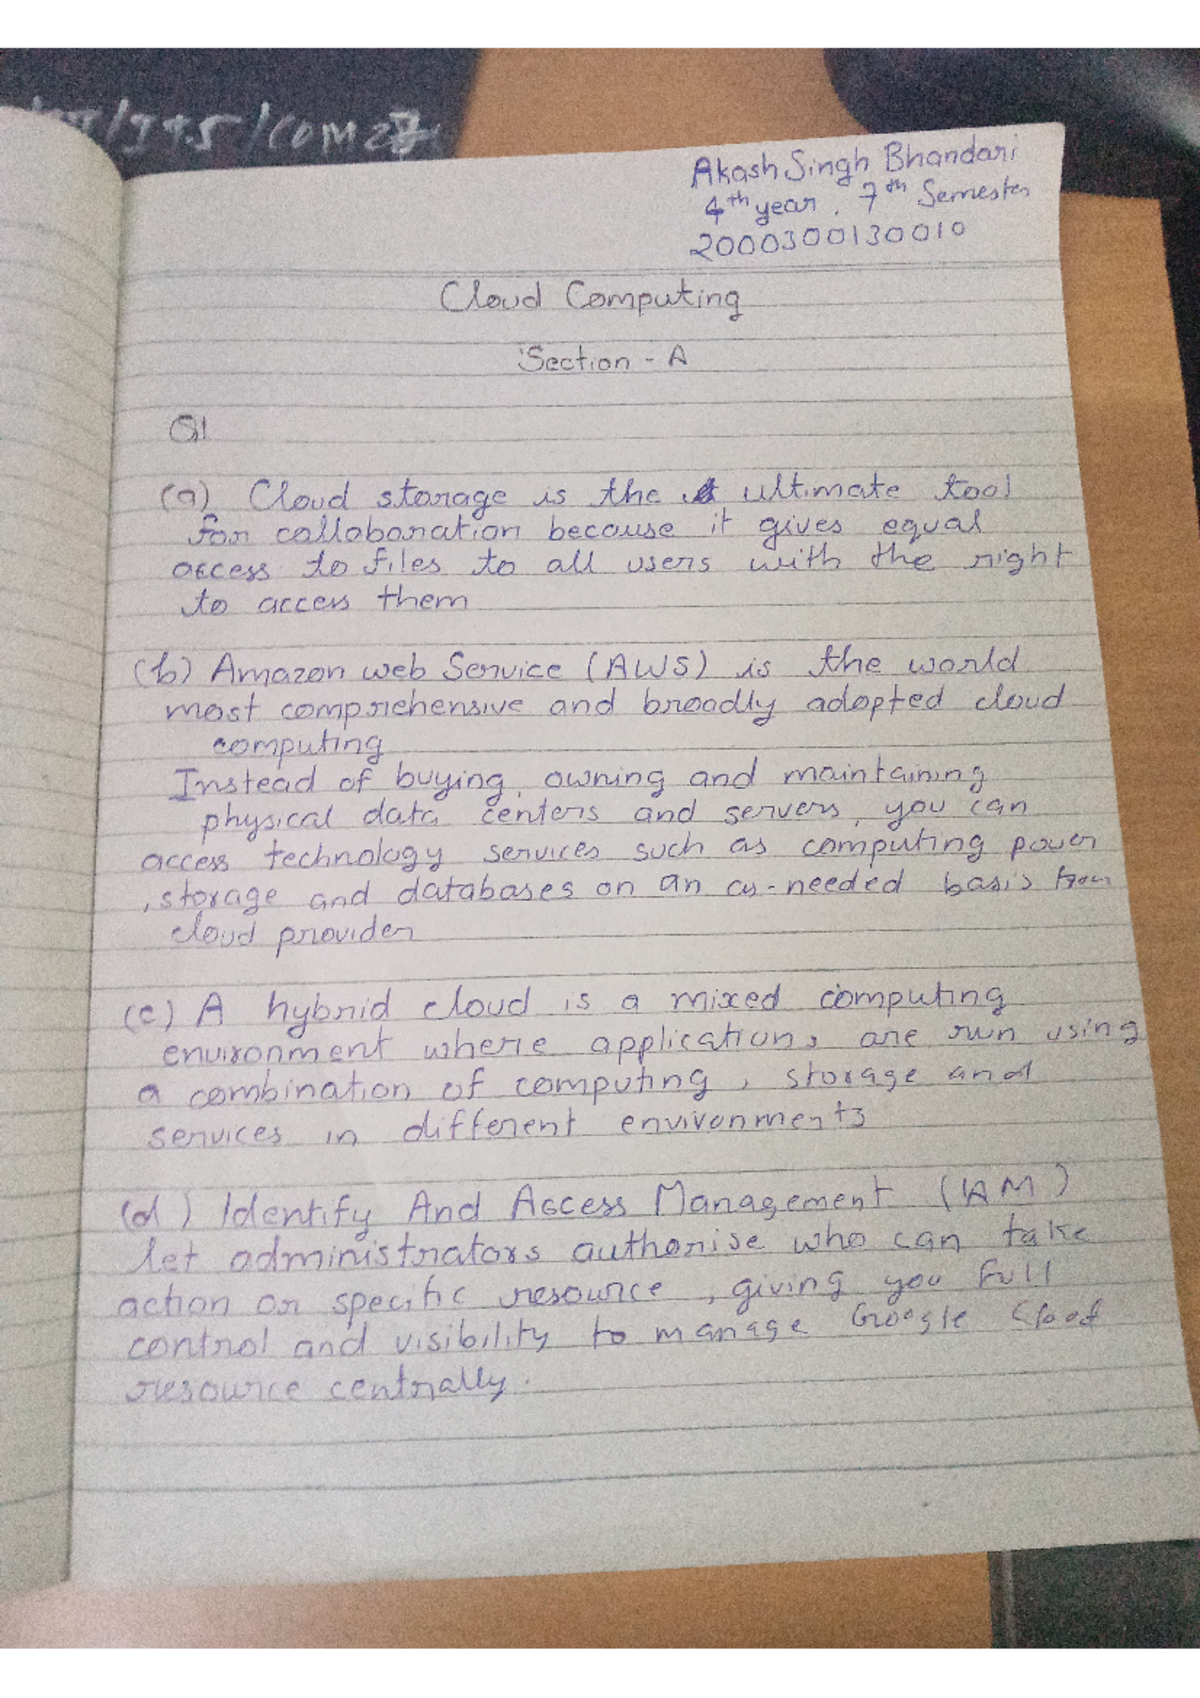 /COM
Akash Singh Bhandari
4th year, 7th Semester
2000300130010
Cloud Computing
Section - A
Q1
(a) Cloud storage is the ultimate tool
for collaboration because it gives equal
access to files to all users with the right
to access them
(b) Amazon web Service (AWS) is the world
most comprehensive and broadly adopted cloud
computing
Instead of buying, owning and maintaining
physical data centers and servers, you can
access technology services such as computing power
, storage and databases on an as-needed basis from
cloud provider
(c) A hybrid cloud is a mixed computing
environment where applications are run using
a combination of computing, storage and
services in different environments
(d) Identify And Access Management (IAM)
let administrators authorise who can take
action on specific resource, giving you full
control and visibility to manage Google Cloud
resource centrally.